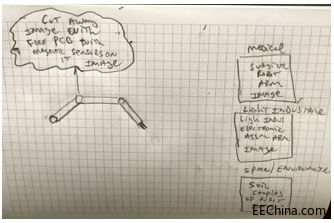 CUT AWAY
IMAGE WITH
FREE PCB WITH
MAGNETIC SENSORS ON
IT IMAGE
MEDICAL
SURGIVE
ROBOT
ARM
IMAGE
LIGHT INDUSTRIAL
LIGH INDU
ELECTRONIC
ASSM ARM
IMAGE
SPACE/ENVIROMENT
SOIL
SAMPLES
OF ROBOT
EEChina.com